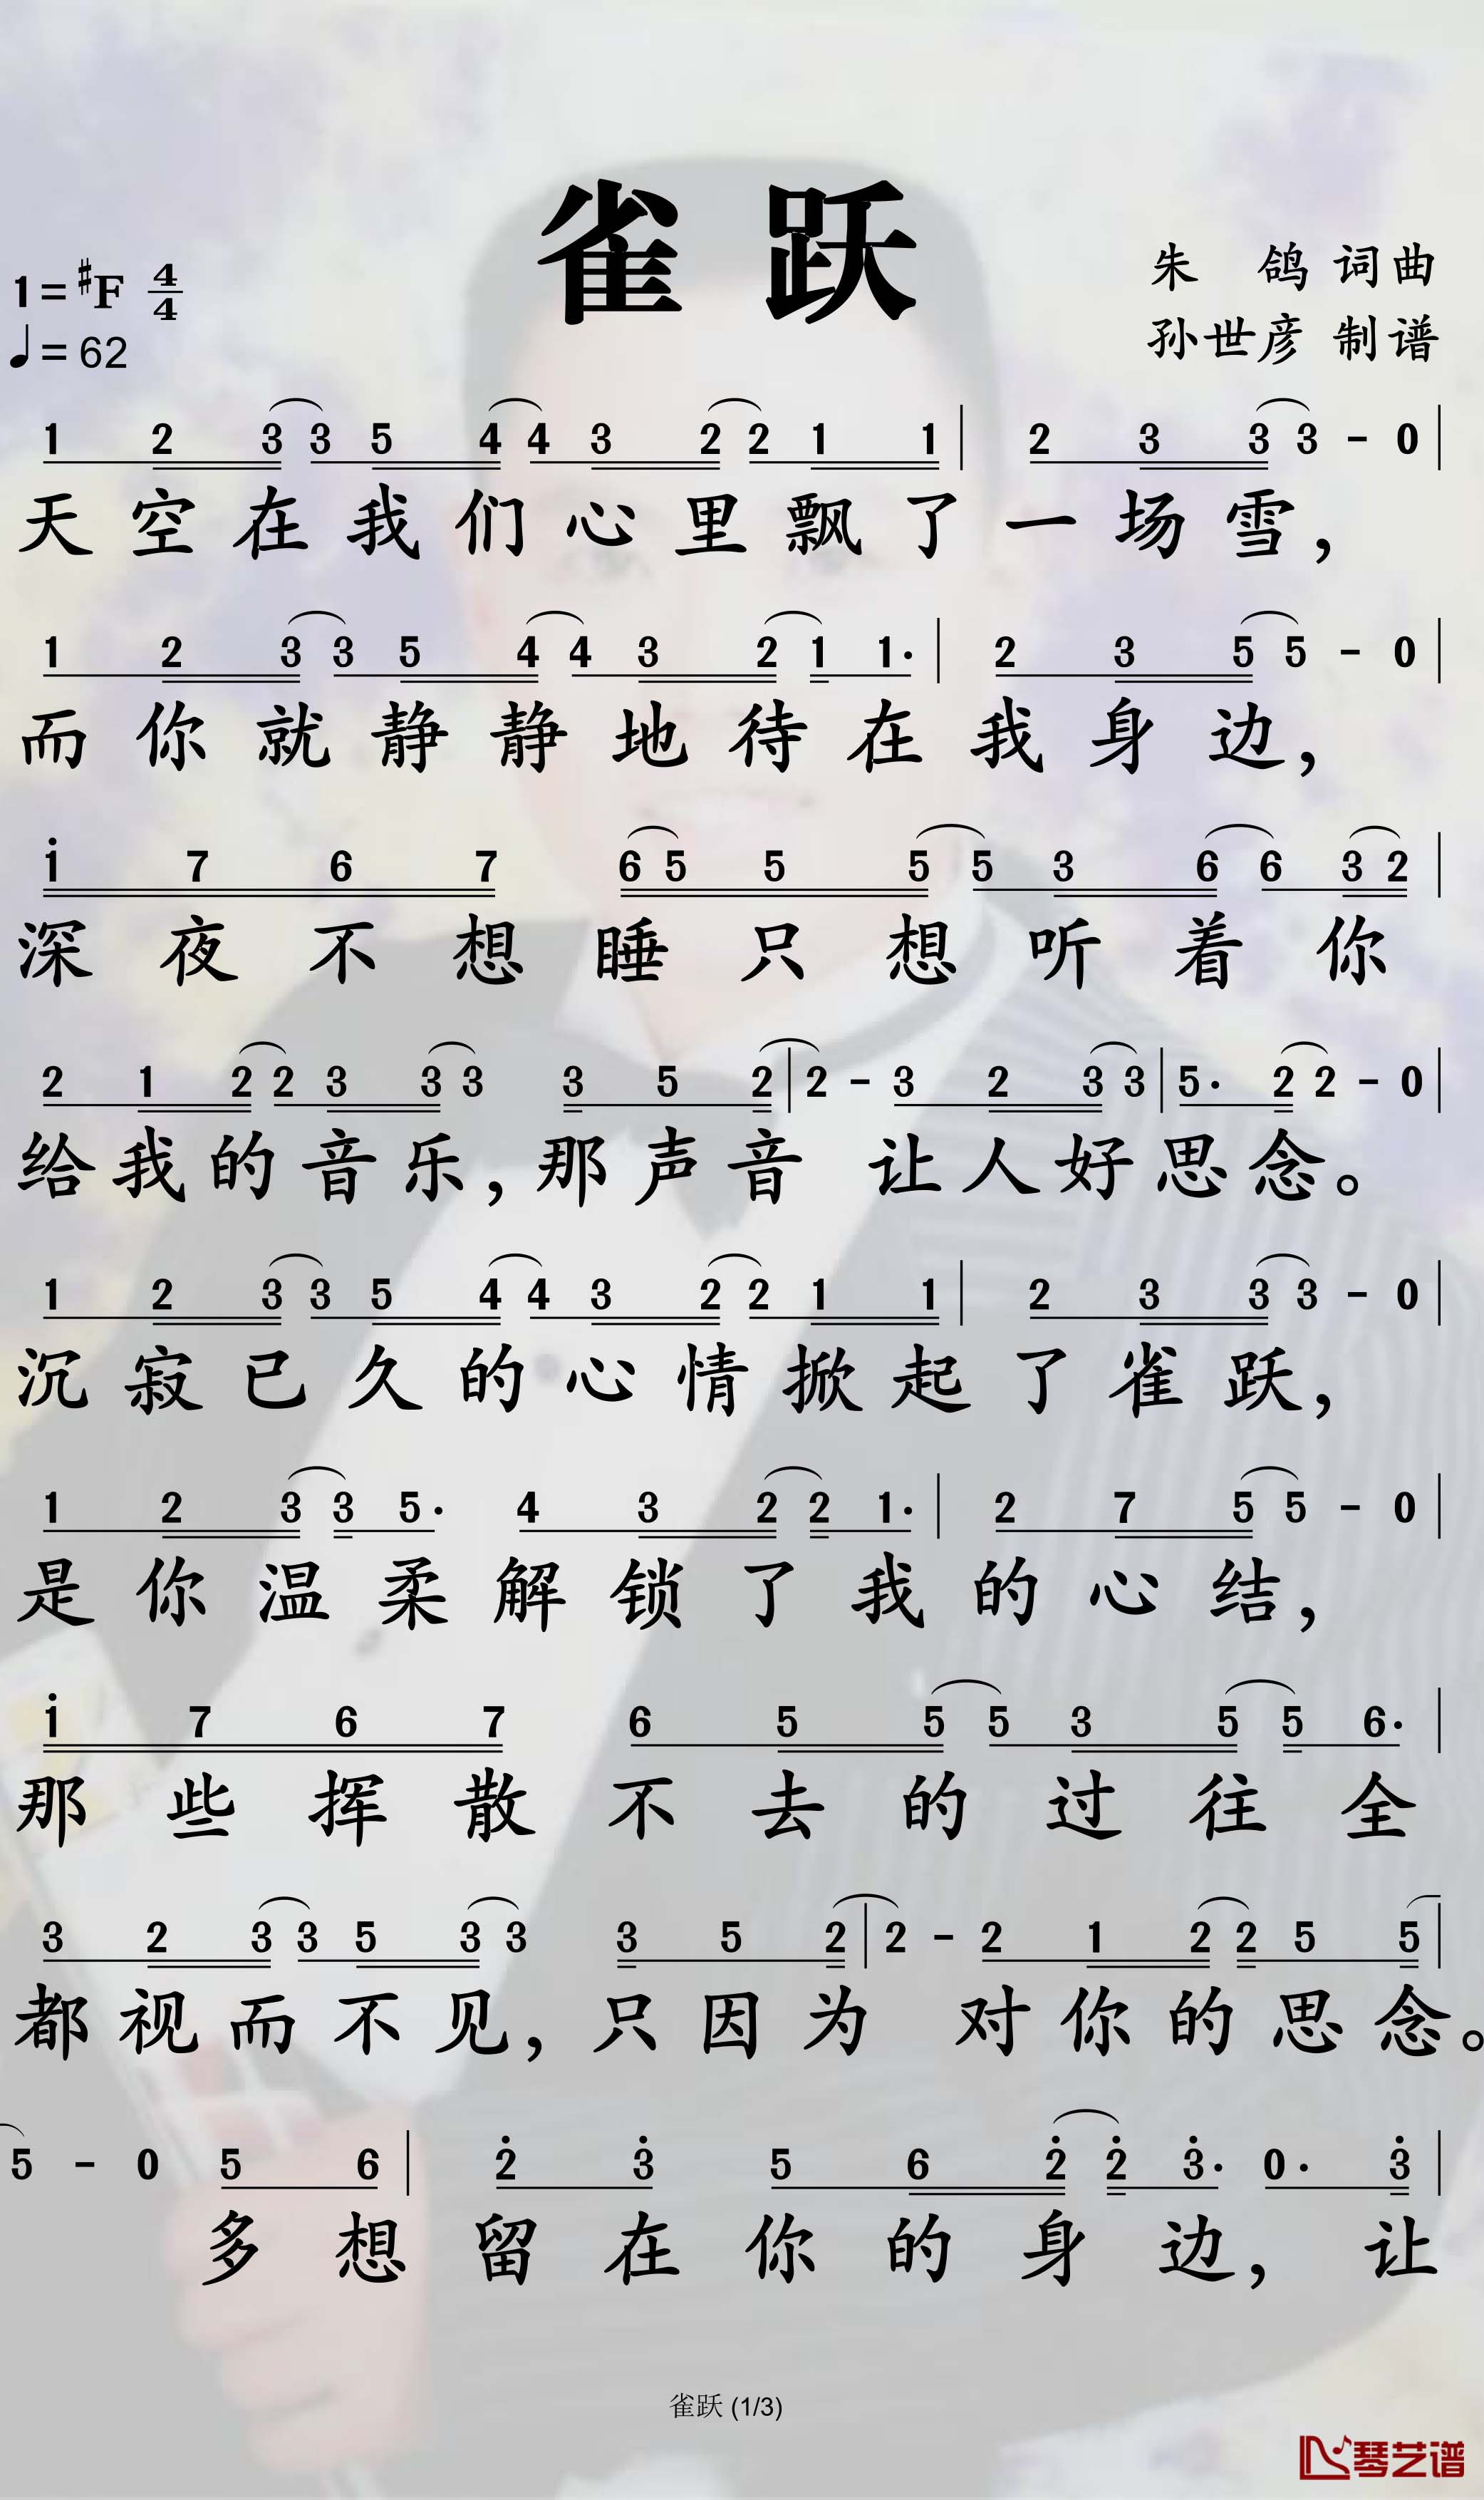 雀跃
朱 鸽 词曲
1=#F 4/4
孙世彦 制谱
♩=62
1 2 3 3 5 4 4 3 2 2 1 1 | 2 3 3 3 - 0 |
天空在我们心里飘了一场雪，
1 2 3 3 5 4 4 3 2 1 1· | 2 3 5 5 - 0 |
而你就静静地待在我身边，
i 7 6 7 6 5 5 5 5 3 6 6 3 2 |
深夜不想睡只想听着你
2 1 2 2 3 3 3 3 5 2 | 2 - 3 2 3 3 | 5· 2 2 - 0 |
给我的音乐，那声音 让人好思念。
1 2 3 3 5 4 4 3 2 2 1 1 | 2 3 3 3 - 0 |
沉寂已久的心情掀起了雀跃，
1 2 3 3 5· 4 3 2 2 1· | 2 7 5 5 - 0 |
是你温柔解锁了我的心结，
i 7 6 7 6 5 5 5 3 5 5 6· |
那些挥散不去的过往全
3 2 3 3 5 3 3 3 5 2 | 2 - 2 1 2 2 5 5 |
都视而不见，只因为 对你的思念。
5 - 0 5 6 | 2̇ 3̇ 5 6 2̇ 2̇ 3̇· 0· 3̇ |
多想留在你的身边，让
雀跃 (1/3)
琴艺谱